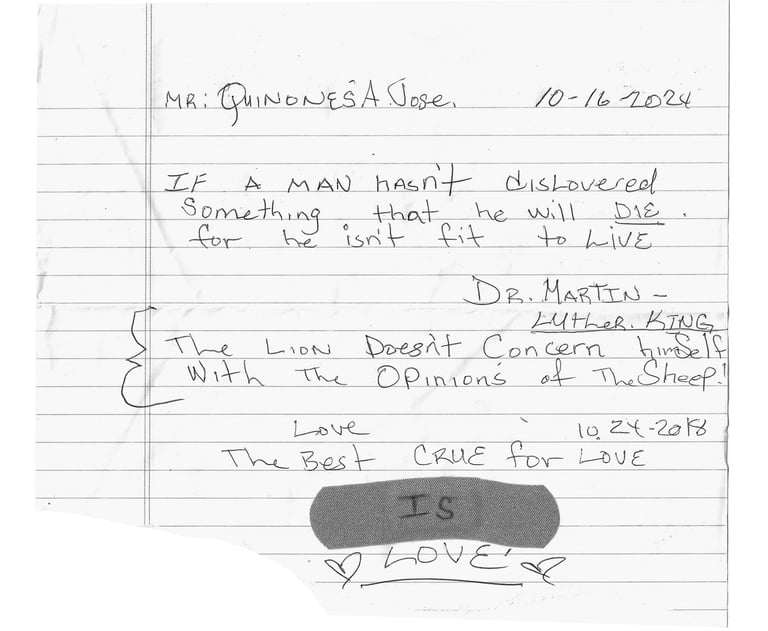 MR: QUINONES A. Jose. 10-16-2024
IF A MAN HASn't disLovered
Something that he will DIE.
for he isn't fit to LIVE
DR. MARTIN -
LUTHER. KING
The LION Doesn't Concern himSelf
With The OPinion's of The Sheep!
Love 10.24-2018
The Best CRUE for LOVE
IS
LOVE!